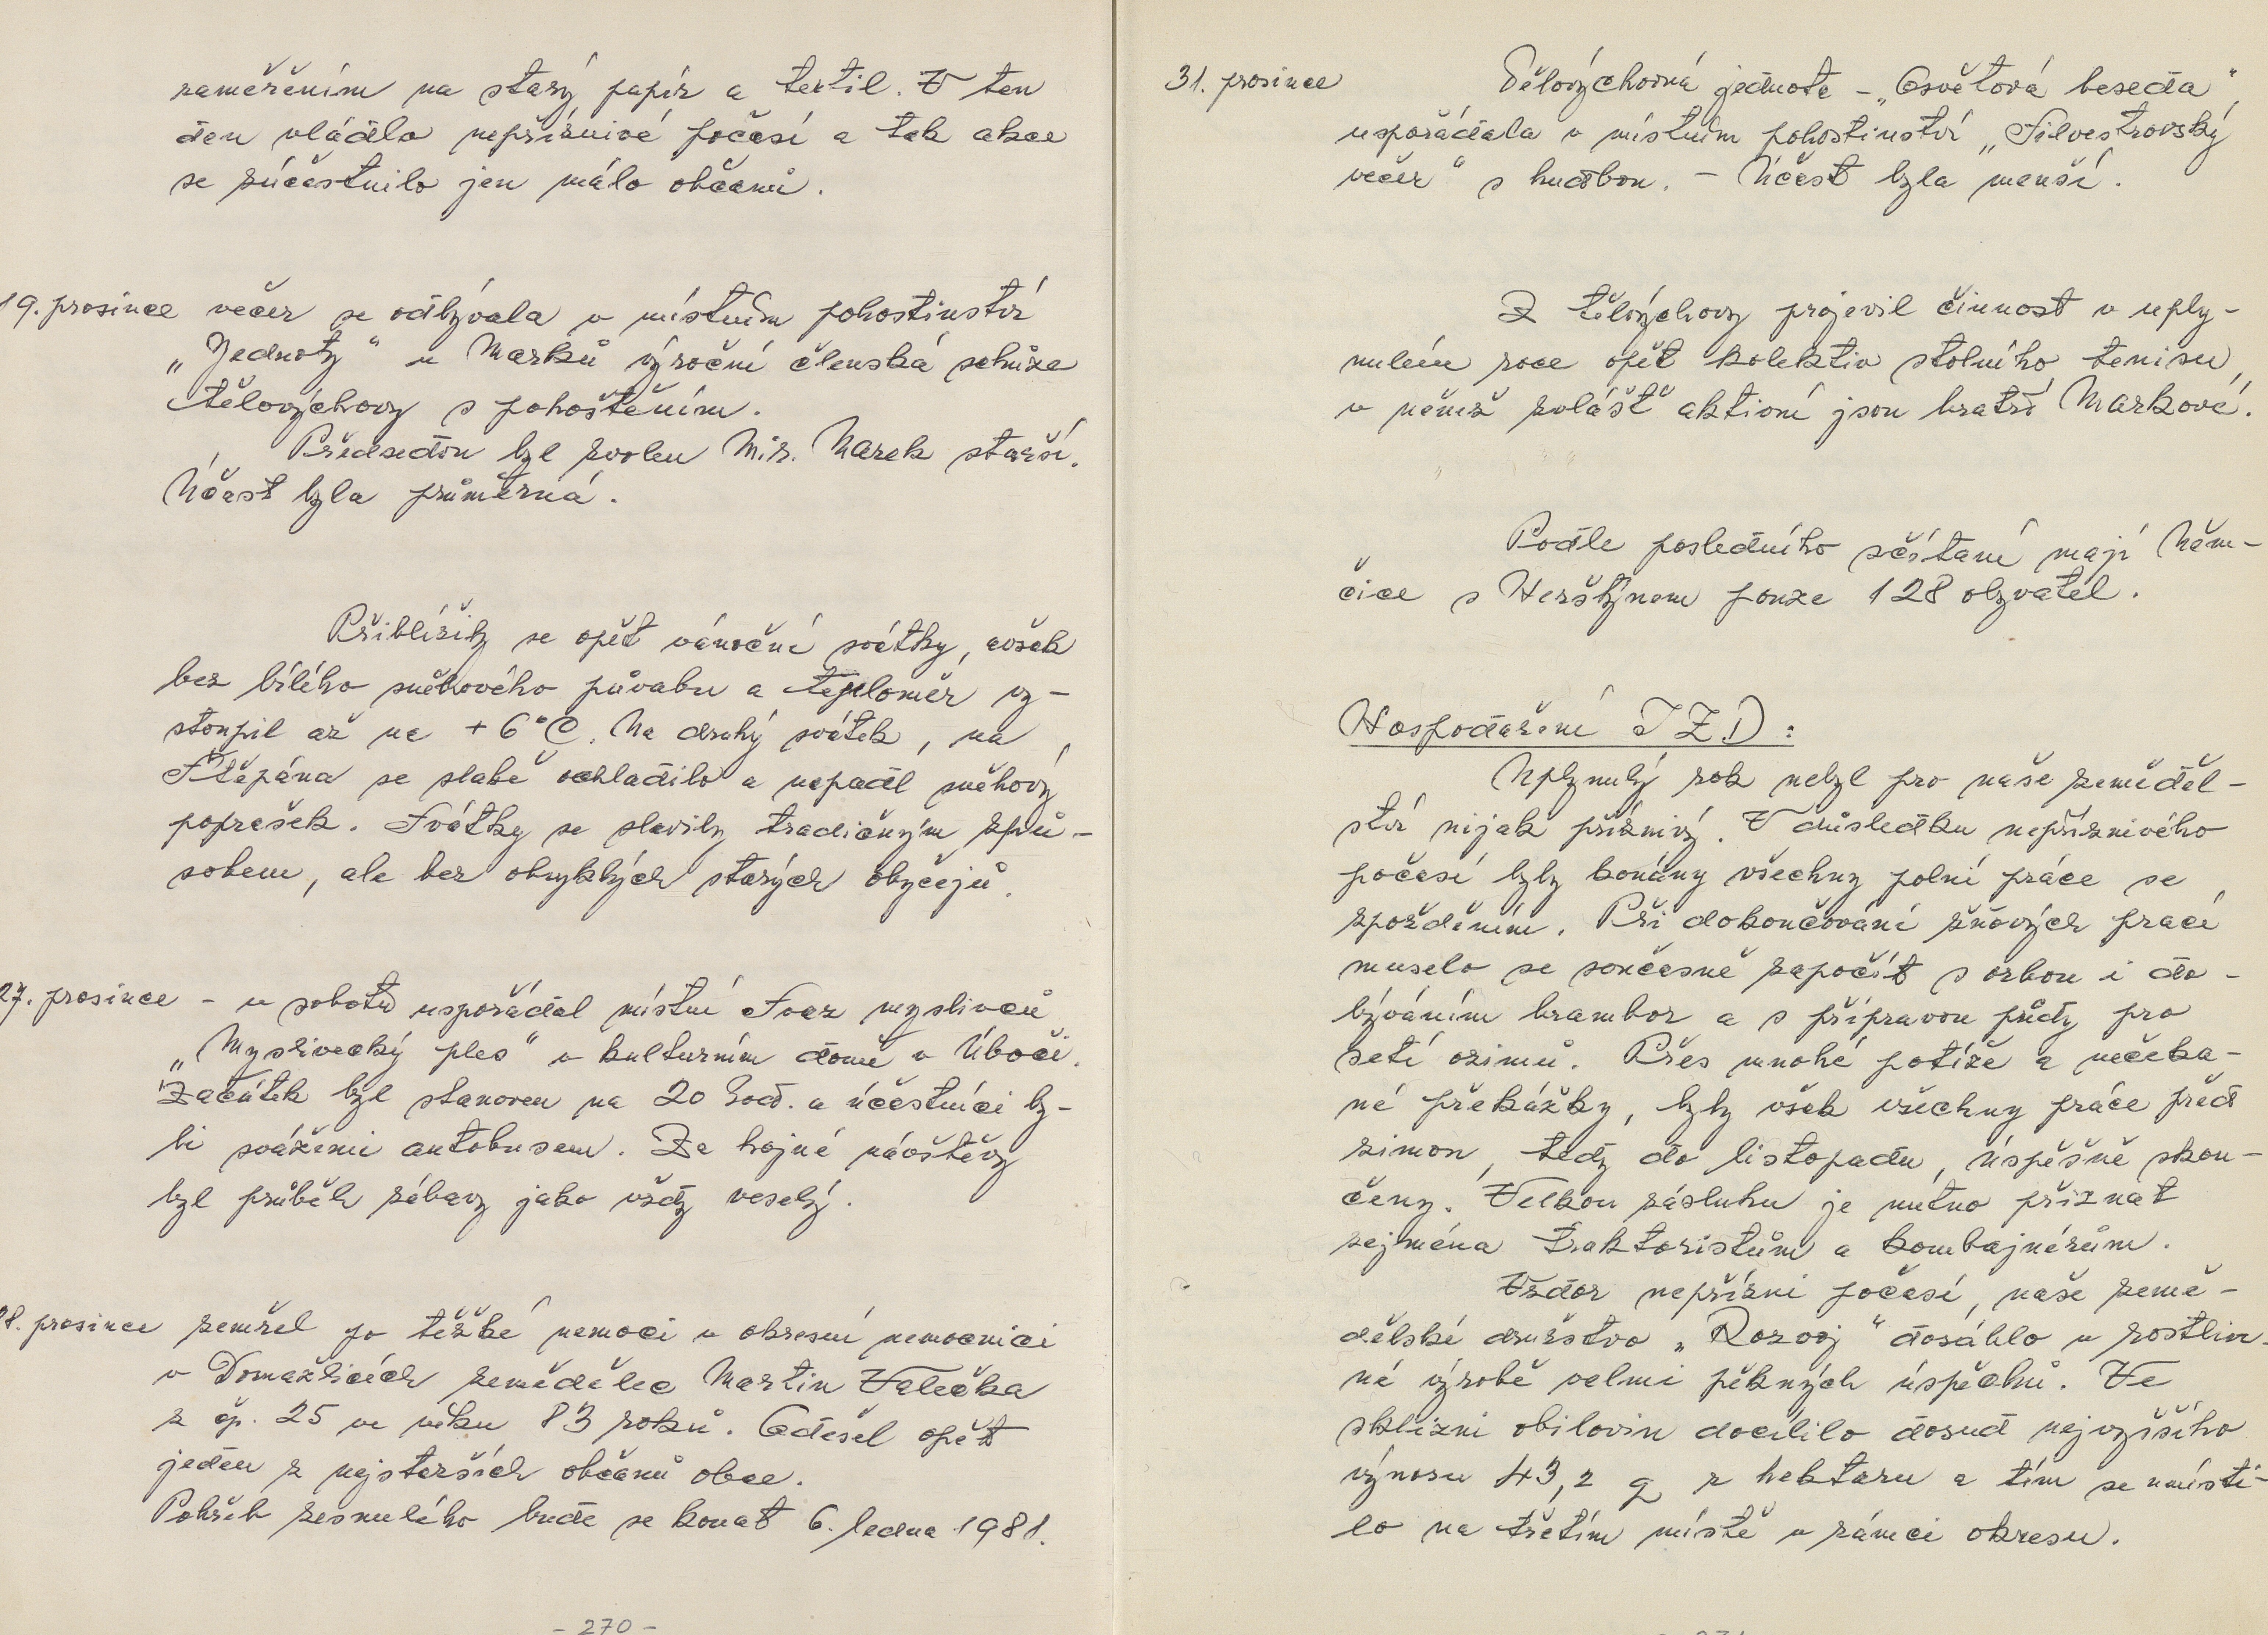 zaměřením na starý papír a textil. V ten
den vládlo nepříznivé počasí a tak akce
se zúčastnilo jen málo občanů.
19. prosince večer se odbývala v místním pohostinství
„Jednoty“ u Marků výroční členská schůze
tělovýchovy s pohoštěním.
Předsedou byl zvolen Mir. Marek starší.
Účast byla průměrná.
Přiblížily se opět vánoční svátky, avšak
bez bílého sněhového půvabu a teploměr vy-
stoupil až na +6°C. Na druhý svátek, na
Štěpána se slabě ochladilo a napadl sněhový
poprašek. Svátky se slavily tradičným způ-
sobem, ale bez obvyklých starých obyčejů.
27. prosince - v sobotu uspořádal místní Svaz myslivců
„Myslivecký ples“ v kulturním domě v Úboči.
Začátek byl stanoven na 20 hod. a účastníci by-
li sváženi autobusem. Za hojné návštěvy
byl průběh zábavy jako vždy veselý.
28. prosince zemřel po těžké nemoci v okresní nemocnici
v Domažlicích zemědělec Martin Valečka
z čp. 25 ve věku 83 roků. Odešel opět
jeden z nejstarších občanů obce.
Pohřeb zesnulého bude se konat 6. ledna 1981.
- 270 -
31. prosince Tělovýchovná jednota - „Osvětová beseda“
uspořádala v místním pohostinství „Silvestrovský
večer“ s hudbou. - Účast byla menší.
Z tělovýchovy projevil činnost v uply-
nulém roce opět kolektiv stolního tenisu,
v němž zvlášť aktivní jsou bratři Markové.
Podle posledního sčítaní mají Něm-
čice s Herštýnem pouze 128 obyvatel.
Hospodaření JZD:
Uplynulý rok nebyl pro naše zeměděl-
ství nijak příznivý. V důsledku nepříznivého
počasí byly konány všechny polní práce se
zpožděním. Při dokončování žňových prací
muselo se současně započít s orbou i do-
býváním brambor a s přípravou půdy pro
setí ozimů. Přes mnohé potíže a nečeka-
né překážky, byly však všechny práce před
zimou, tedy do listopadu, úspěšně skon-
čeny. Velkou zásluhu je nutno přiznat
zejména traktoristům a kombajnérům.
Vzdor nepřízni počasí, naše země-
dělské družstvo „Rozvoj“ dosáhlo v rostlin-
né výrobě velmi pěkných úspěchů. Ve
sklizni obilovin docílilo dosud nejvyššího
výnosu 43,2 q z hektaru a tím se umísti-
lo na třetím místě v rámci okresu.